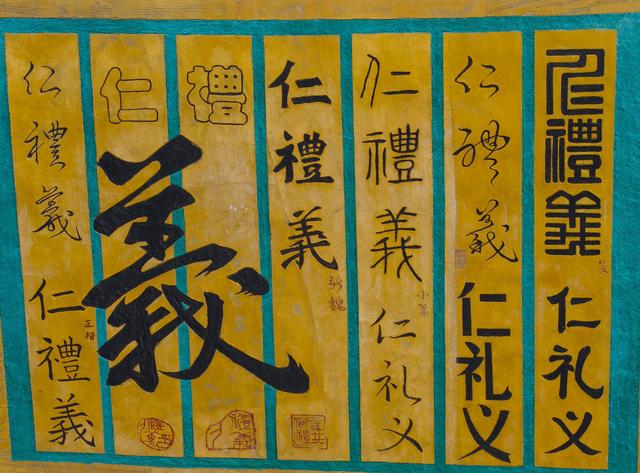 仁禮義
仁礼义
仁禮義
仁礼义
仁禮義
仁礼义
仁禮義
新魏
禮
仁
義
仁禮義
仁禮義
正楷